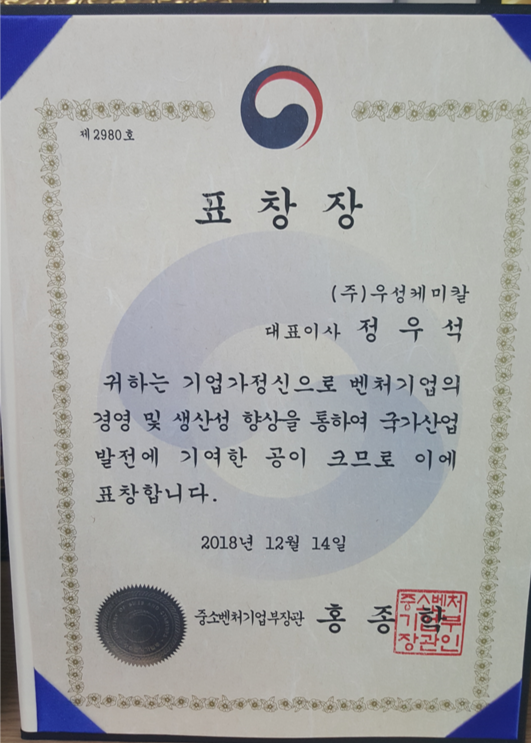 제2980호
표창장
(주)우성케미칼
대표이사 정우석
귀하는 기업가정신으로 벤처기업의
경영 및 생산성 향상을 통하여 국가산업
발전에 기여한 공이 크므로 이에
표창합니다.
2018년 12월 14일
중소벤처기업부장관 홍종학
중소벤처
기업부
장관인